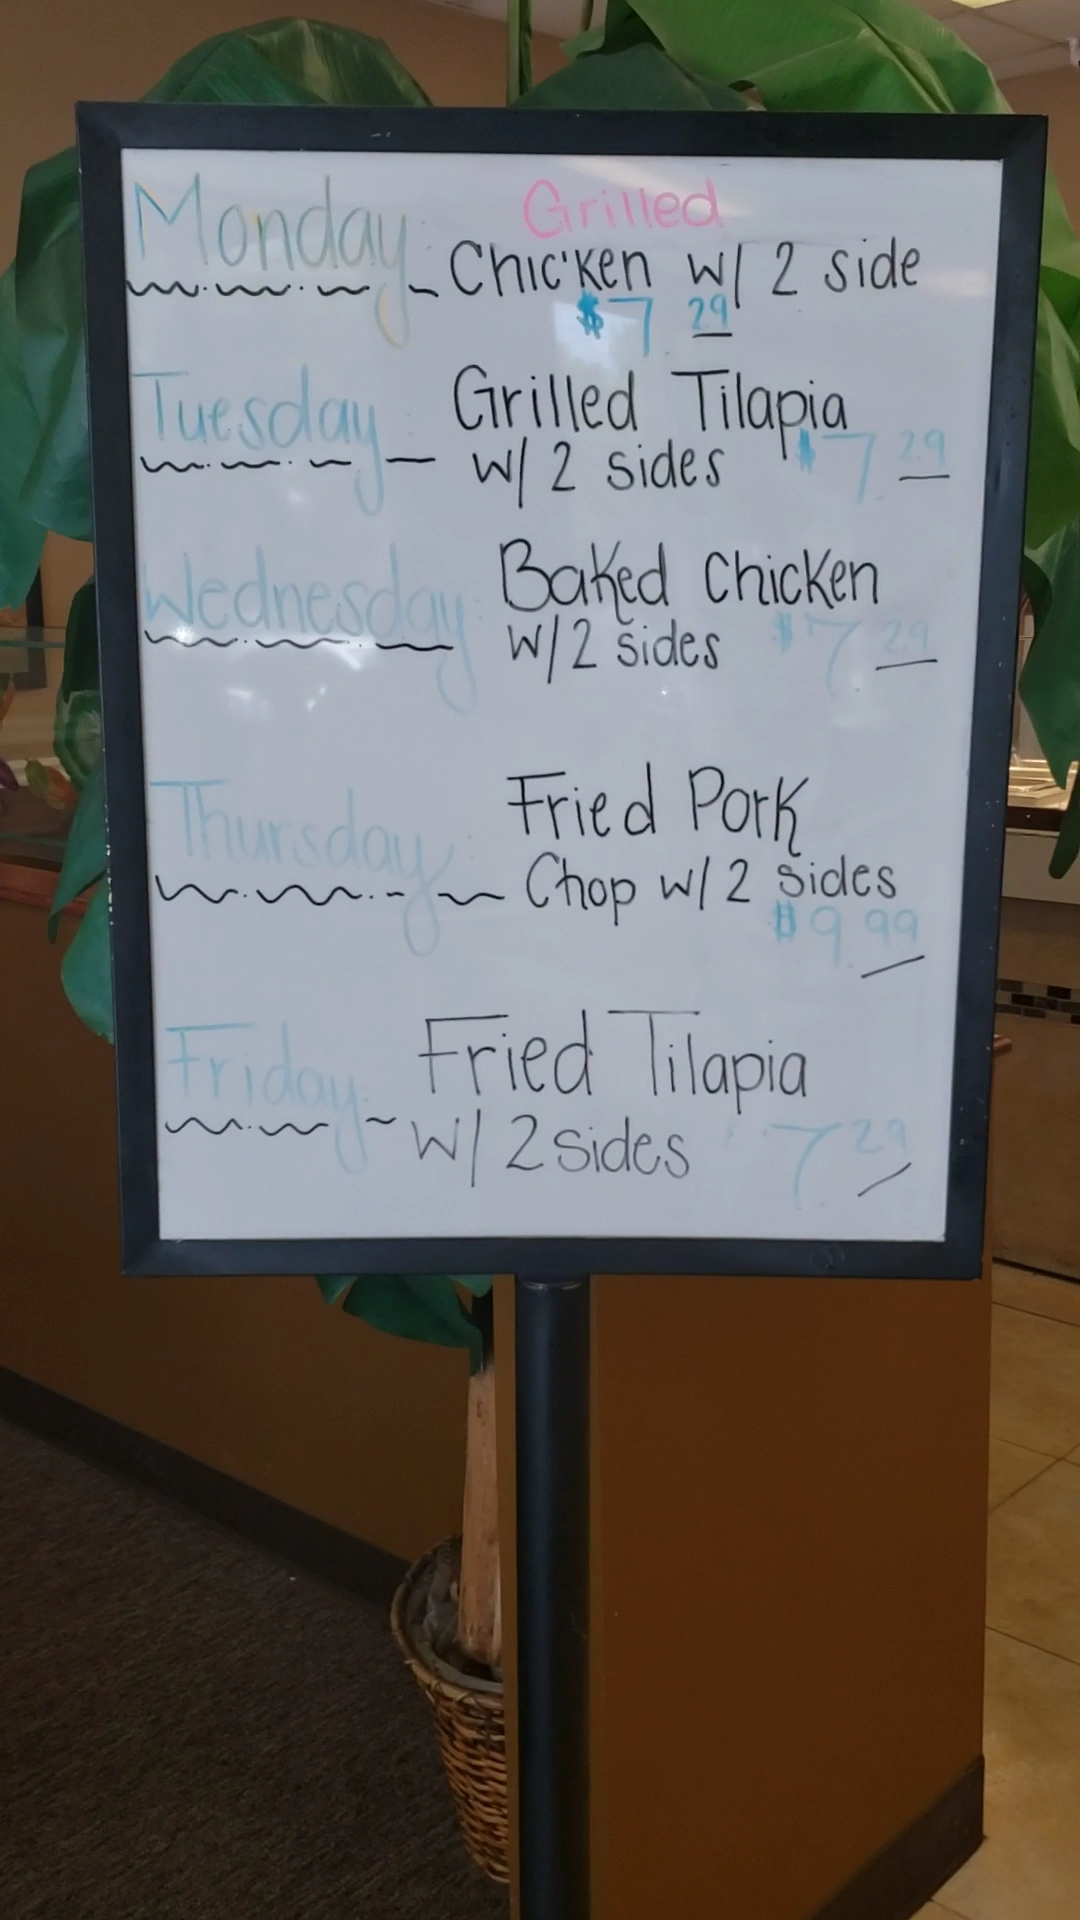 Monday: Grilled
Chicken w/ 2 side
$7.29
Tuesday: Grilled Tilapia
w/ 2 sides $7.29
Wednesday: Baked Chicken
w/ 2 sides $7.29
Thursday: Fried Pork
Chop w/ 2 sides
$9.99
Friday: Fried Tilapia
w/ 2 sides 7.29